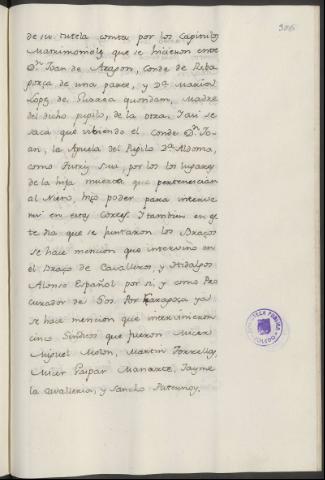 306
de su tutela consta por los Capitulos
Matrimoniales que se hicieron entre
Dn. Joan de Aragon, Conde de Riba
gorça de una parte, y Da. Maria
Lopz. de Gurrea quondam, Madre
del dicho pupilo, de la otra. Y assi se
saca que vibiendo el Conde Dn. Jo-
an, la Aguela del Pupilo Da. Aldonza,
como Tutriz sua, por los lugares
de la hija muerta que pertenecian
al Nieto, hizo poder para interve
nir en estas Cortes. Y tambien en es
te dia que se juntaron los Braços
se hace mencion que intervino en
el Braço de Cavalleros, y Hidalgos
Alonso Español por si, y como Pro
curador de Sos. Por Zaragoza ya
se hace mencion que intervinieron
cinco Sindicos que fueron Micer
Miguel Molon, Martin Torrellas,
Micer Gaspar Manente, Jayme
la Cavalleria, y Sancho Paternoy.
TOLEDO